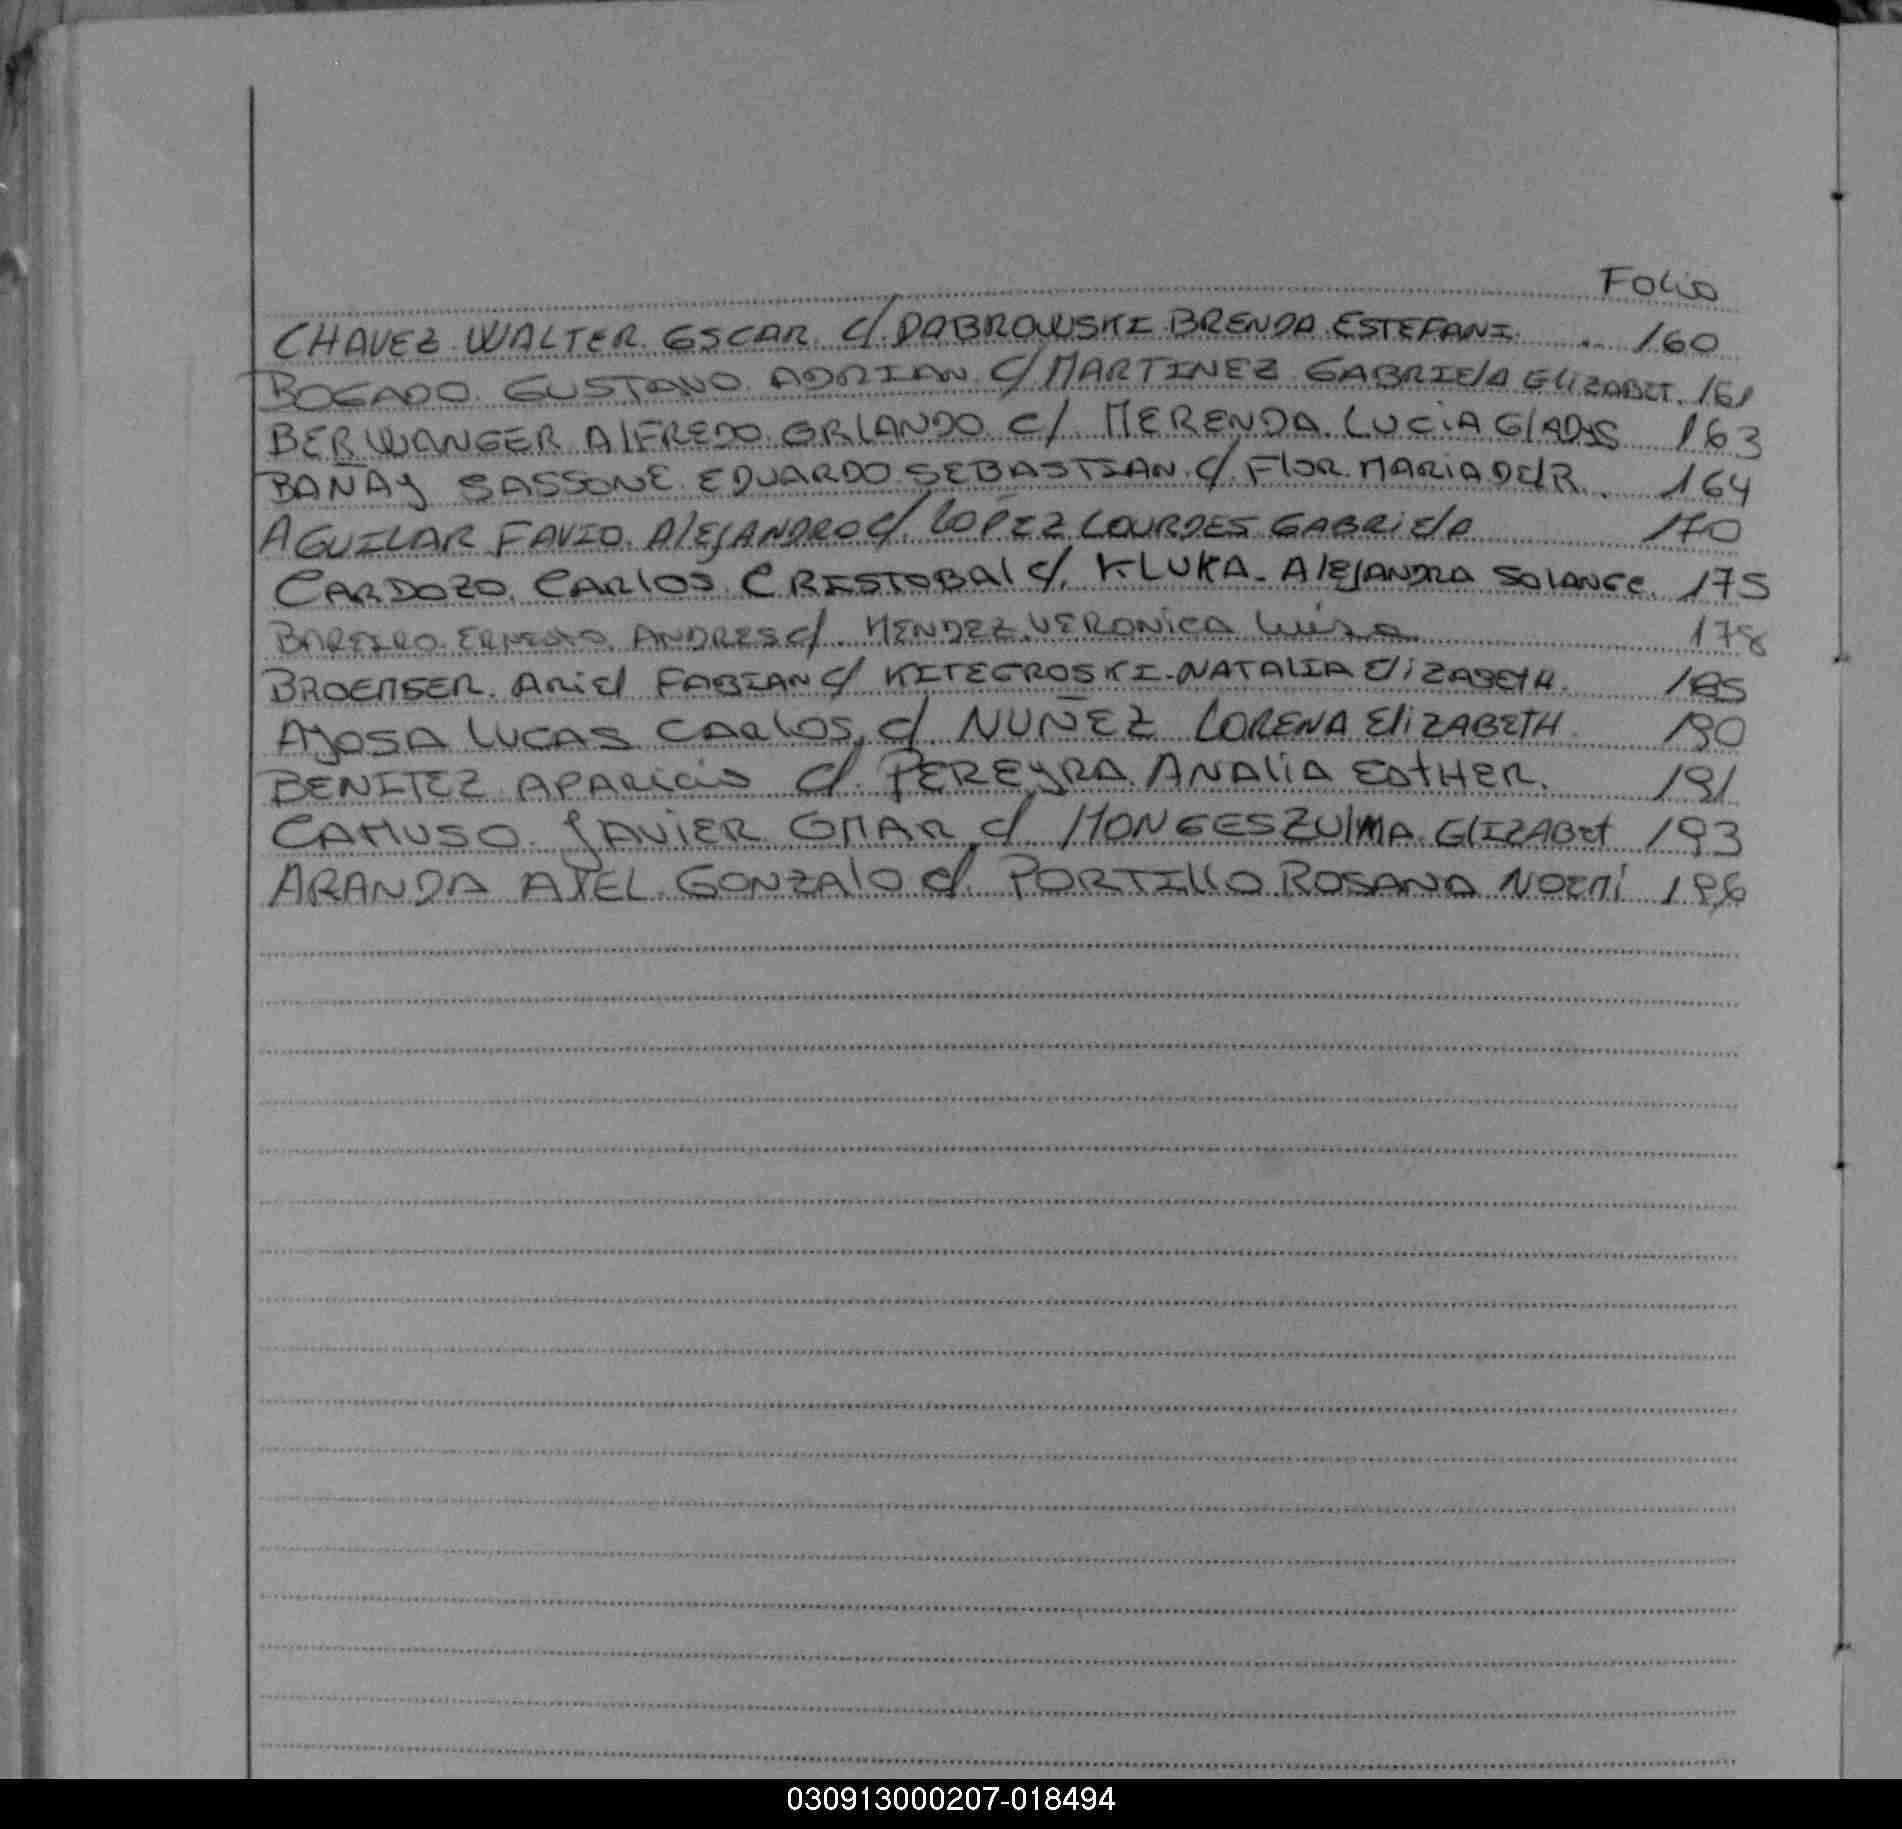 Folio
CHAVEZ WALTER OSCAR c/ DABROWSKI BRENDA ESTEFANI 160
BOGADO GUSTAVO ADRIAN c/ MARTINEZ GABRIELA ELIZABET. 161
BERWANGER AlFREDO ORLANDO c/ MERENDA LUCiA GlADyS 163
BAÑAy SASSONE EDUARDO SEBASTIAN c/ FloR MARiA DelR. 164
AGUILAR FAVIO AlEjANDRO c/ LOPEZ LOURDES GABRiElA 170
CARDOZO CARlOS CRISTOBAl c/. KLUKA - AlEjANDRA SOlANGE. 175
BAREIRO ERNESTO ANDRES c/. MENDEZ VERONiCA Luisa 178
BROEMSER ARiEl FABIAN c/ KITEGROSKI - NATALIA EliZABETH. 185
AyOSA LUCAS CARlOS c/ NUÑEZ LORENA EliZABETH. 190
BENITEZ APARicio c/. PEREyRA ANALiA ESTHER. 191
CAMUSO JAVIER OMAR c/ MONGES ZUlMA ElIZABEt 193
ARANDA AXEL GONZAlO c/. PORTIllO ROSANA NOEMí 196
030913000207-018494